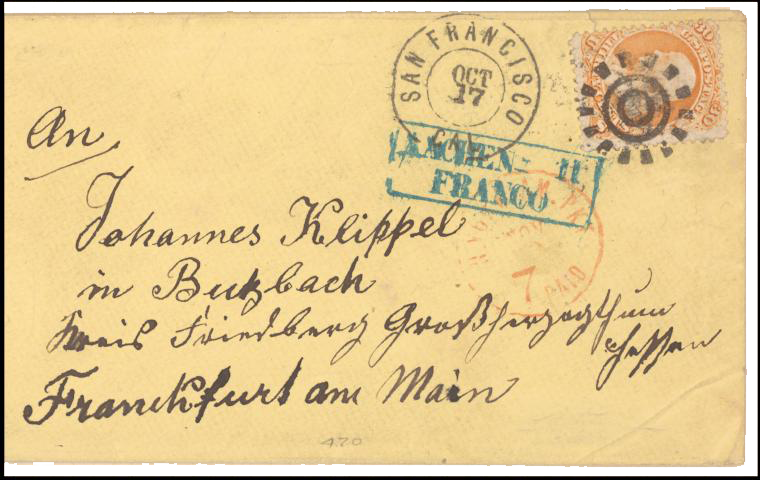 SAN FRANCISCO
CAL.
OCT
17
30 U.S. POSTAGE 30
AACHEN 11
FRANCO
NEW YORK
NOV
7
PAID
An
Johannes Klippel
in Butzbach
Kreis Friedberg Großherzogthum
Hessen
Franckfurt am Main
420